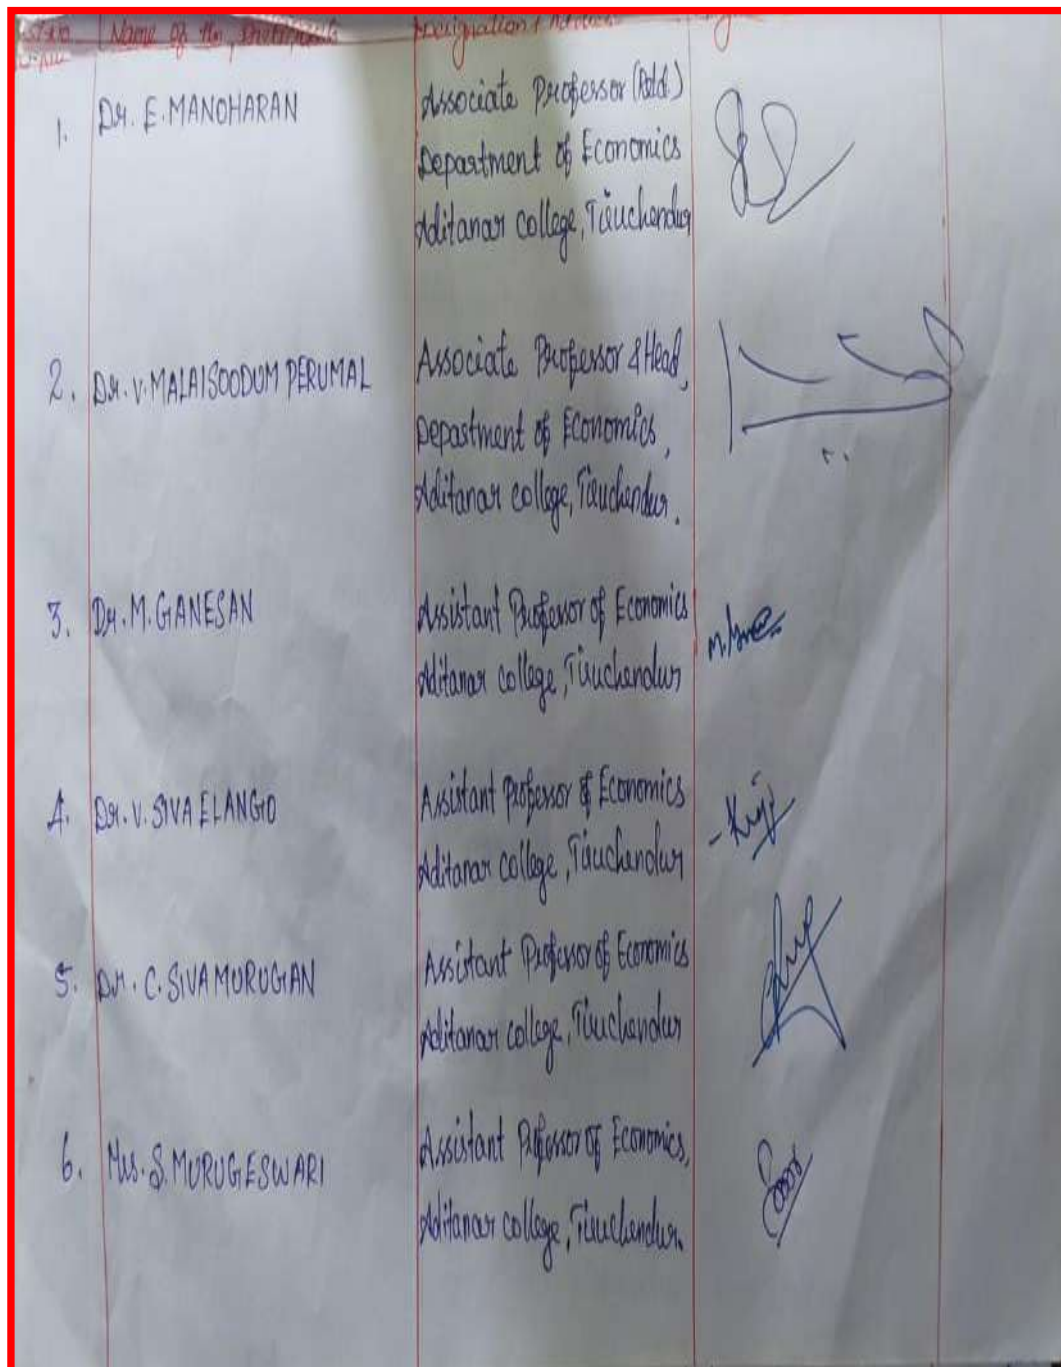 Name of the Participants
Designation & Address
1. Dr. E. MANOHARAN
Associate Professor (Retd.)
Department of Economics
Aditanar college, Tiruchendur
2. Dr. V. MALAISOODUM PERUMAL
Associate Professor & Head,
Department of Economics,
Aditanar college, Tiruchendur.
3. Dr. M. GANESAN
Assistant Professor of Economics
Aditanar college, Tiruchendur
4. Dr. V. SIVA ELANGO
Assistant Professor of Economics
Aditanar college, Tiruchendur
5. Dr. C. SIVA MURUGAN
Assistant Professor of Economics
Aditanar college, Tiruchendur
6. Mrs. S. MURUGESWARI
Assistant Professor of Economics,
Aditanar college, Tiruchendur.